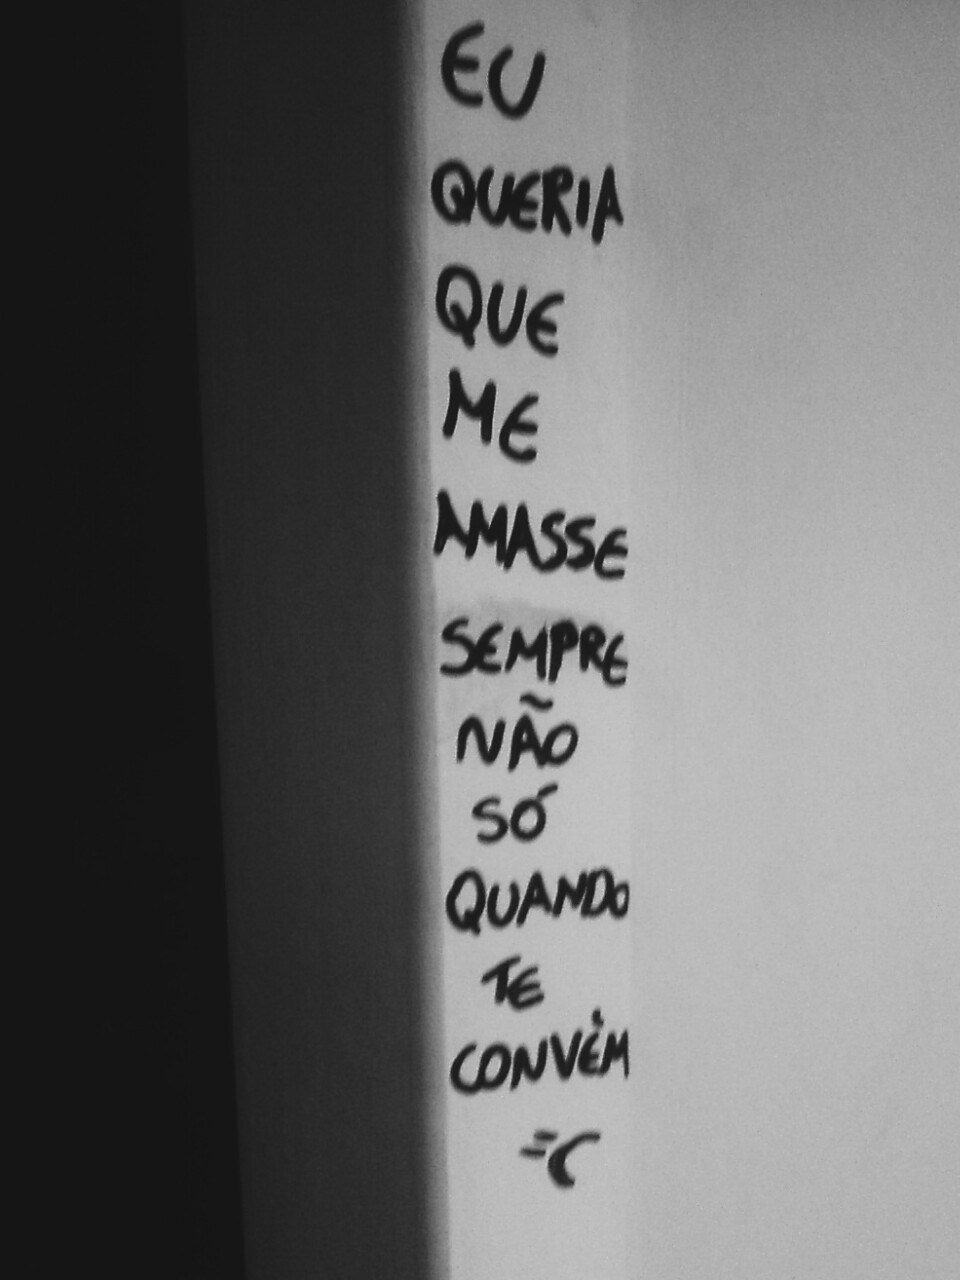 EU
QUERIA
QUE
ME
AMASSE
SEMPRE
NÃO
SÓ
QUANDO
TE
CONVÉM
=(